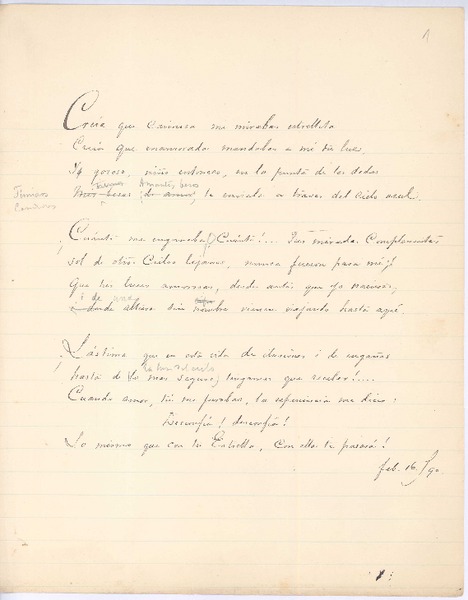 1
Creía que cariñosa me mirabas estrellita
Creía que enamorada mandabas a mí tu luz,
Yo gozoso, niño entonces, en la punta de los dedos
Tiernos Amantes, besos
Mis besos de amor, te enviaba a traves del cielo azul.
Tiernos
Cuánto me engañaba! Cuánto!... Tus miradas Complacientes
sol de otros Cielos lejanos, nunca fueron para mí!
Que tus luces amorosas, desde antes que yo naciera,
i de
desde altura sin nombre vienen viajando hasta aquí
Lástima que en esta vida de ilusiones i de engaños
hasta de lo mas seguro tengamos que recelar!....
Cuando amor, tú me perturbas, la esperiencia me dice:
Desconfía! desconfía!
Lo mismo que con tu Estrella, Con ella te pasará!
feb. 16/90